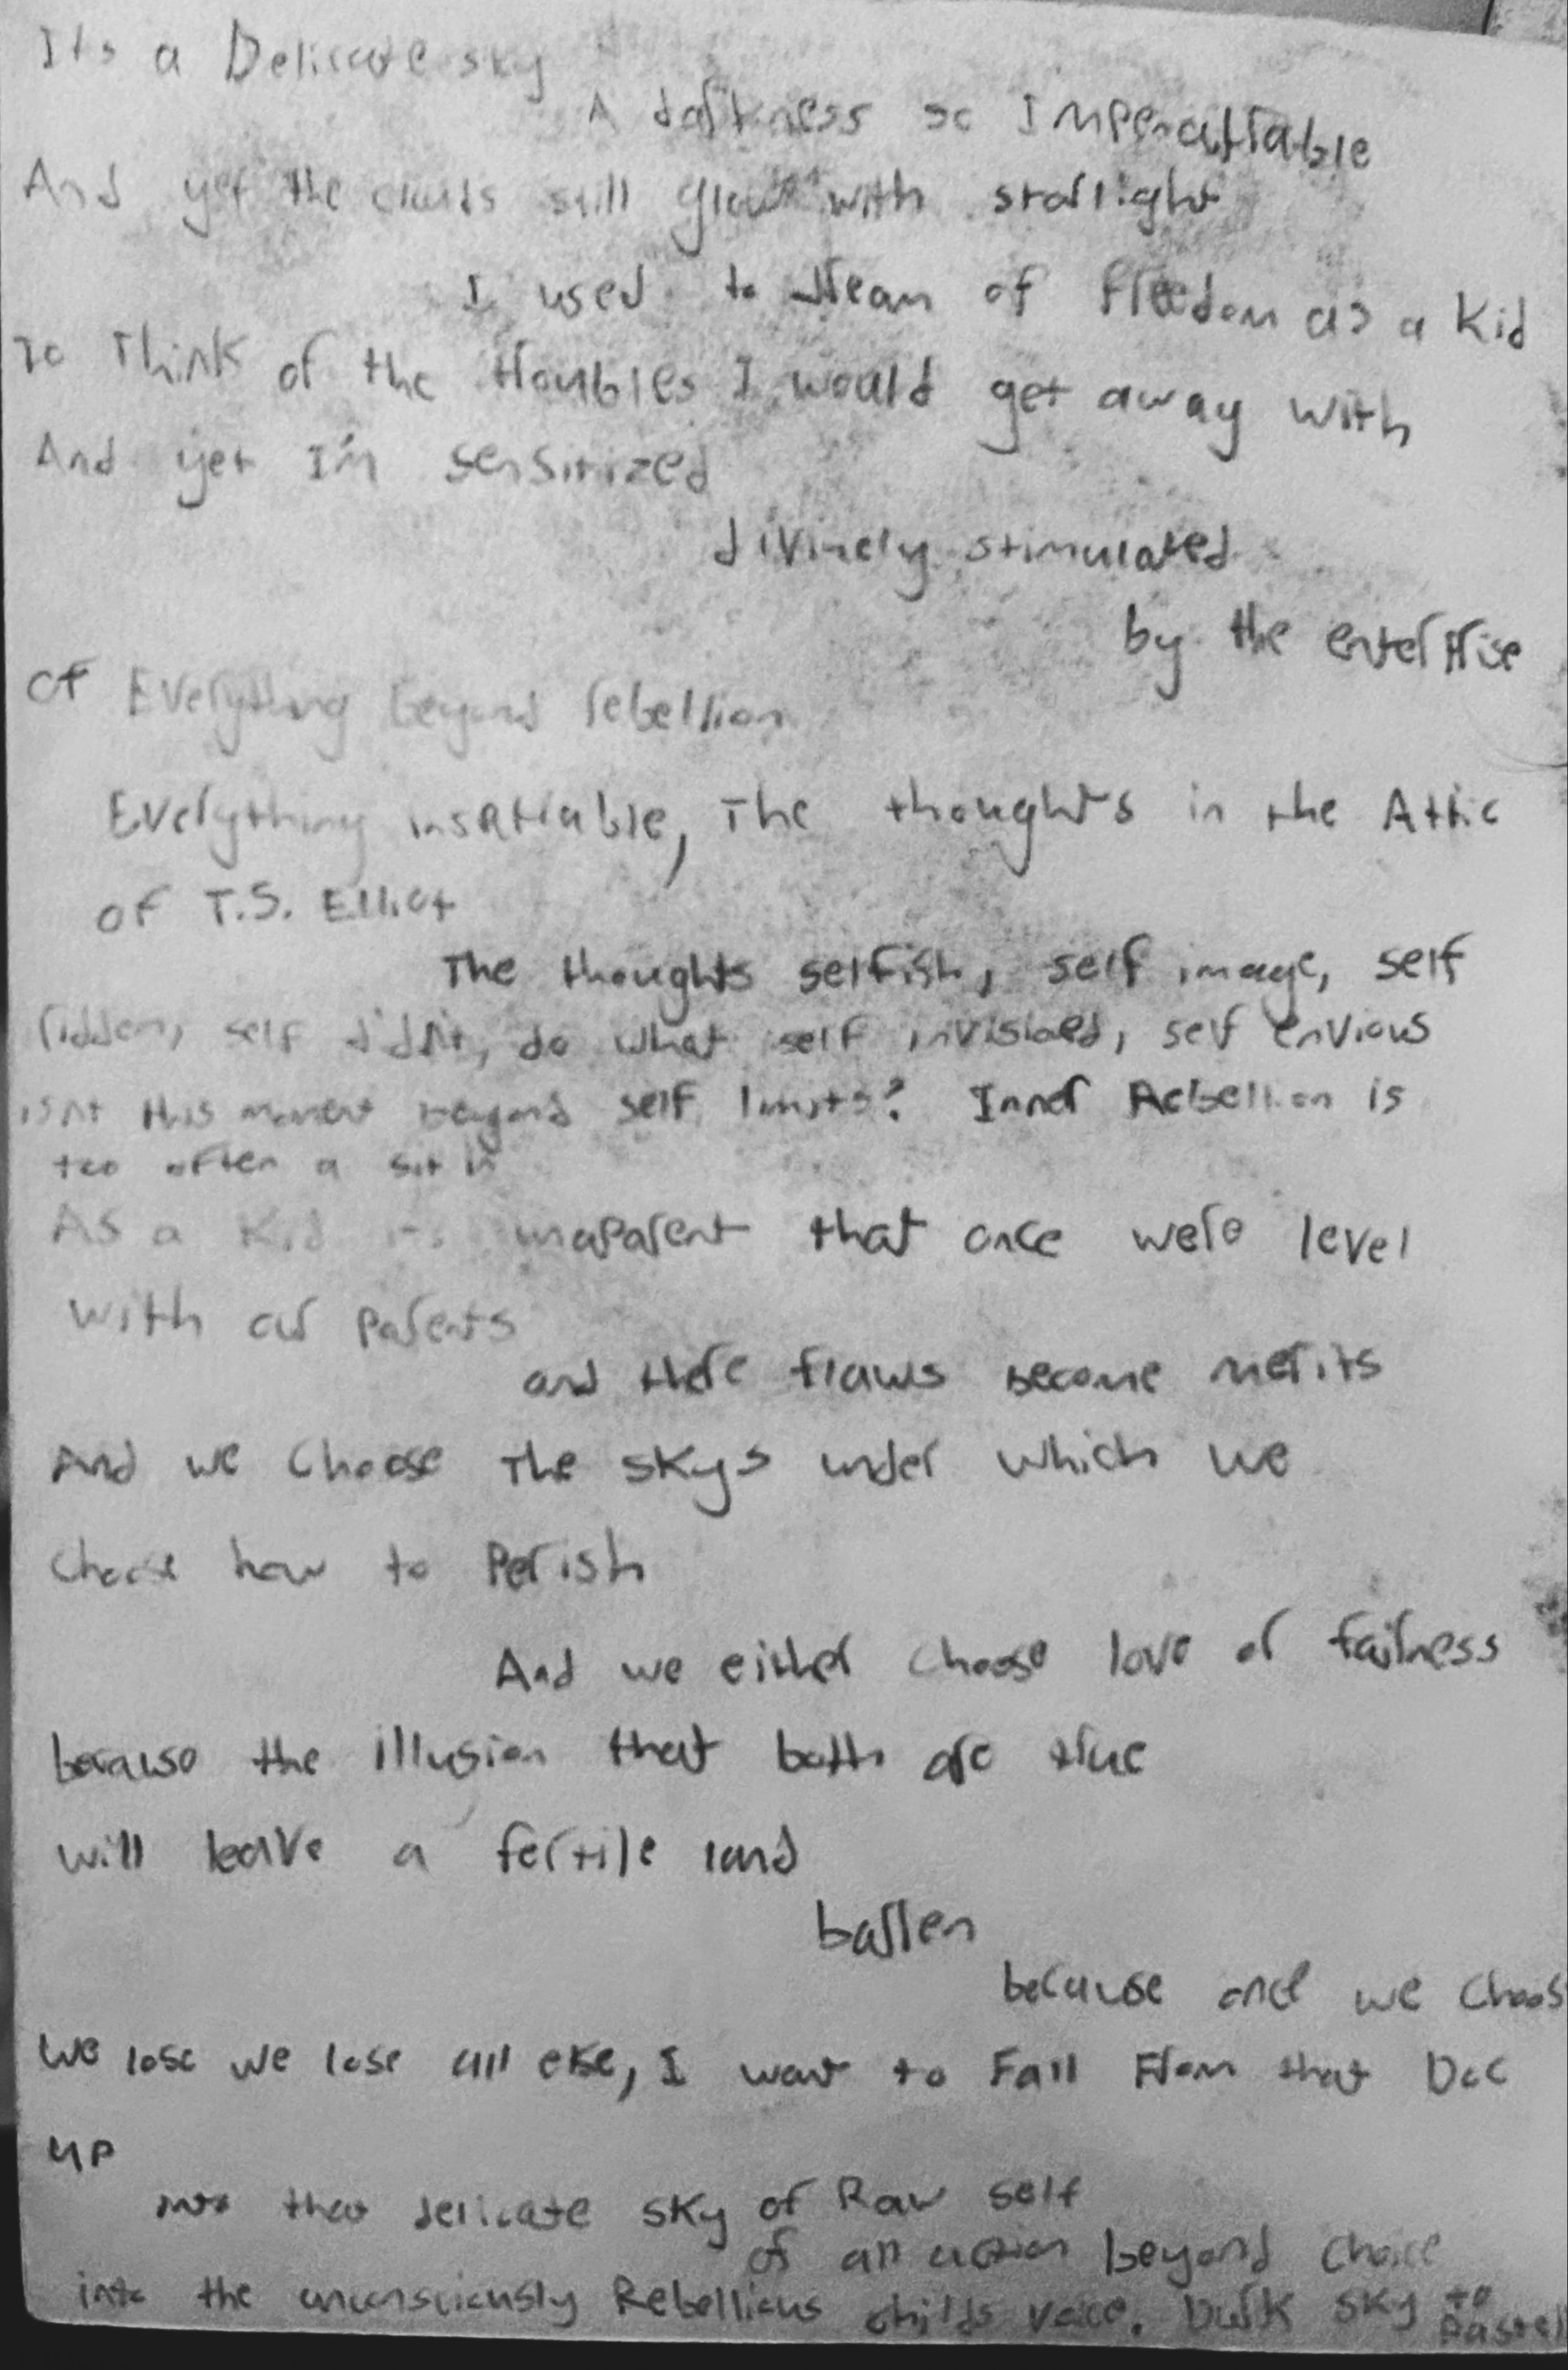 Its a Delicate sky
A darkness so
And yet the clouds still glow with starlight
I used to dream of freedom as a kid
To Think of the troubles I would get away with
And yet I'm sensitized
divinely stimulated
by the enterprise
of Everything beyond rebellion
Everything insatiable, The thoughts in the Attic
of T.S. Elliot
The thoughts selfish, self image, self
ridden, self didn't, do what self, self envious
isnt this moment beyond self limits? Inner Rebellion is
too often a sit in
As a Kid its unaparent that once were level
with our parents
and there flaws become merits
And we choose The skys under which we
choose how to Perish
And we either choose love or fairness
because the illusion that both are true
will leave a fertile land
barren
because once we choos
we lose we lose all else, I want to Fall From that Doc
up
into that delicate sky of Raw self
of all action beyond choice
into the unconsciously Rebellious childs voice. Dark sky to
Pastel